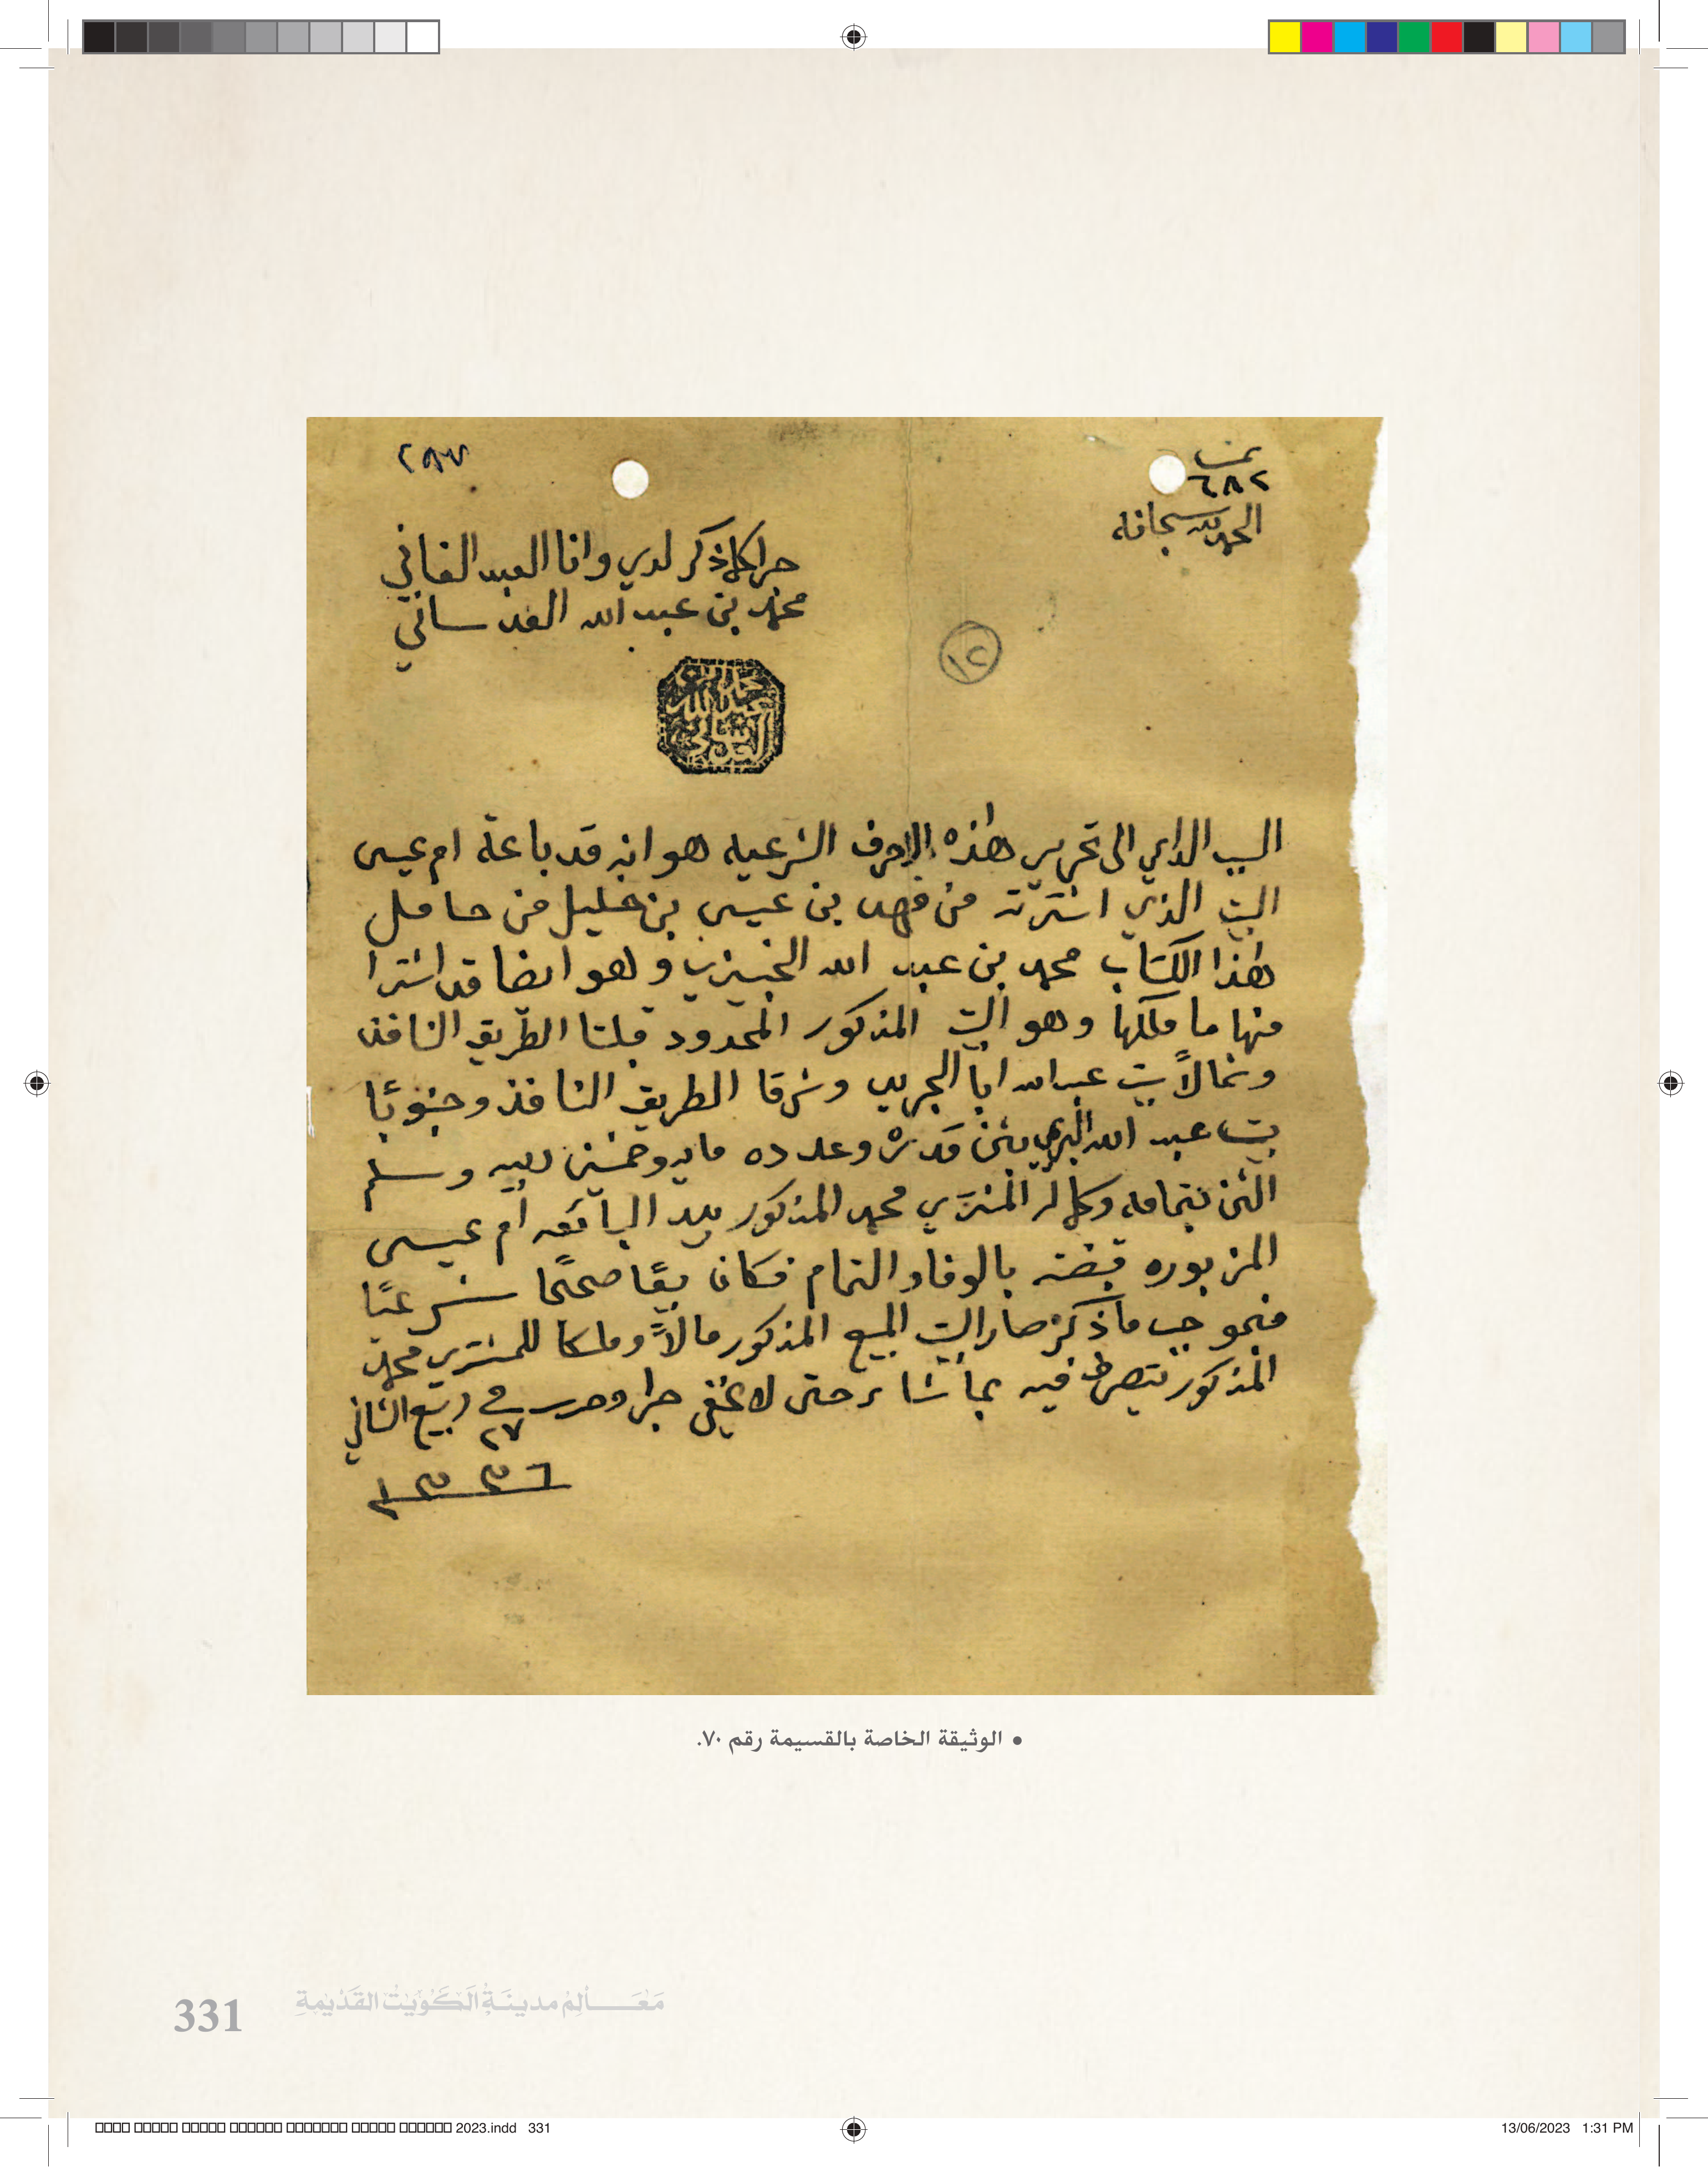 ٢٨٧
نمرة
٦٨٢
الحمد لله سبحانه
جرا كلما ذكر لدي وانا العبد الفاني
محمد بن عبد الله العدساني
١٢
محمد بن
عبد الله
العدساني
السبب الداعي الى تحرير هذه الاحرف الشرعيه هو انه قد باعة ام عيسى
البيت الذي اشترته من فهد بن عيسى بن خليل من حامل
هذا الكتاب محمد بن عبد الله الخبيزي وهو ايضا قد اشترا
منها ما ملكها وهو البيت المذكور المحدود قبلتا الطريق النافذ
وشمالاً بيت عبدالله ابا الجريب وشرقا الطريق النافذ وجنوبًا
بيت عبد الله بثمن قدره وعدده مايه وخمسين ربيه وسلم
الثمن بتمامه وكماله المشتري محمد المذكور بيد البائعه ام عيسى
المزبوره قبضته بالوفاء والتمام فكان بيعًا صحيحًا شرعيًا
فبموجب ما ذكر صار البيت المبيع المذكور مالاً وملكا للمشتري محمد
المذكور يتصرف فيه بما شاء حتى لا يخفى جرا وحرر في ٢٧ ربيع الثاني
١٣٣٦
• الوثيقة الخاصة بالقسيمة رقم ٧٠.
331 مَعَـــالِمُ مدينَـةِ الكُوَيْت القَدْيمةِ
2023.indd 331 13/06/2023 1:31 PM